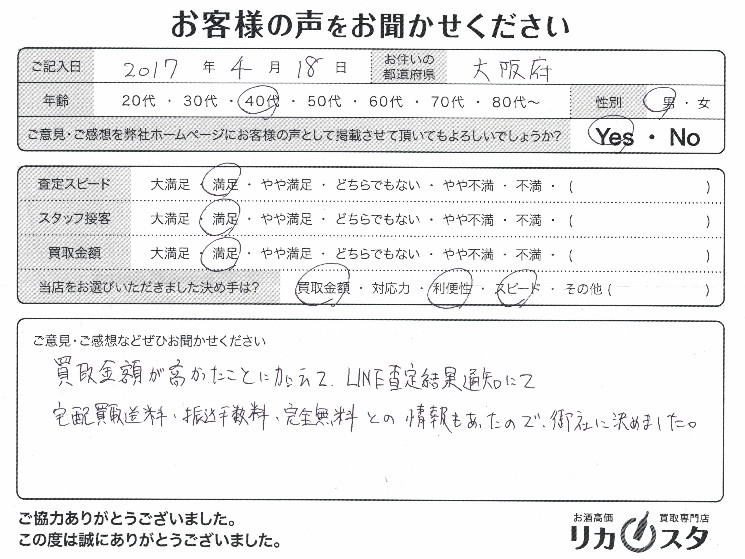 お客様の声をお聞かせください
ご記入日 2017 年 4 月 18 日 お住いの都道府県 大阪府
年齢 20代・30代・40代・50代・60代・70代・80代～ 性別 男・女
ご意見・ご感想を弊社ホームページにお客様の声として掲載させて頂いてもよろしいでしょうか? Yes・No
査定スピード 大満足・満足・やや満足・どちらでもない・やや不満・不満・( )
スタッフ接客 大満足・満足・やや満足・どちらでもない・やや不満・不満・( )
買取金額 大満足・満足・やや満足・どちらでもない・やや不満・不満・( )
当店をお選びいただきました決め手は? 買取金額・対応力・利便性・スピード・その他( )
ご意見・ご感想などぜひお聞かせください
買取金額が高かったことに加えて、LINE査定結果通知にて
宅配買取送料、振込手数料、完全無料との情報もあったので、御社に決めました。
ご協力ありがとうございました。
この度は誠にありがとうございました。
お酒高価 買取専門店
リカスタ